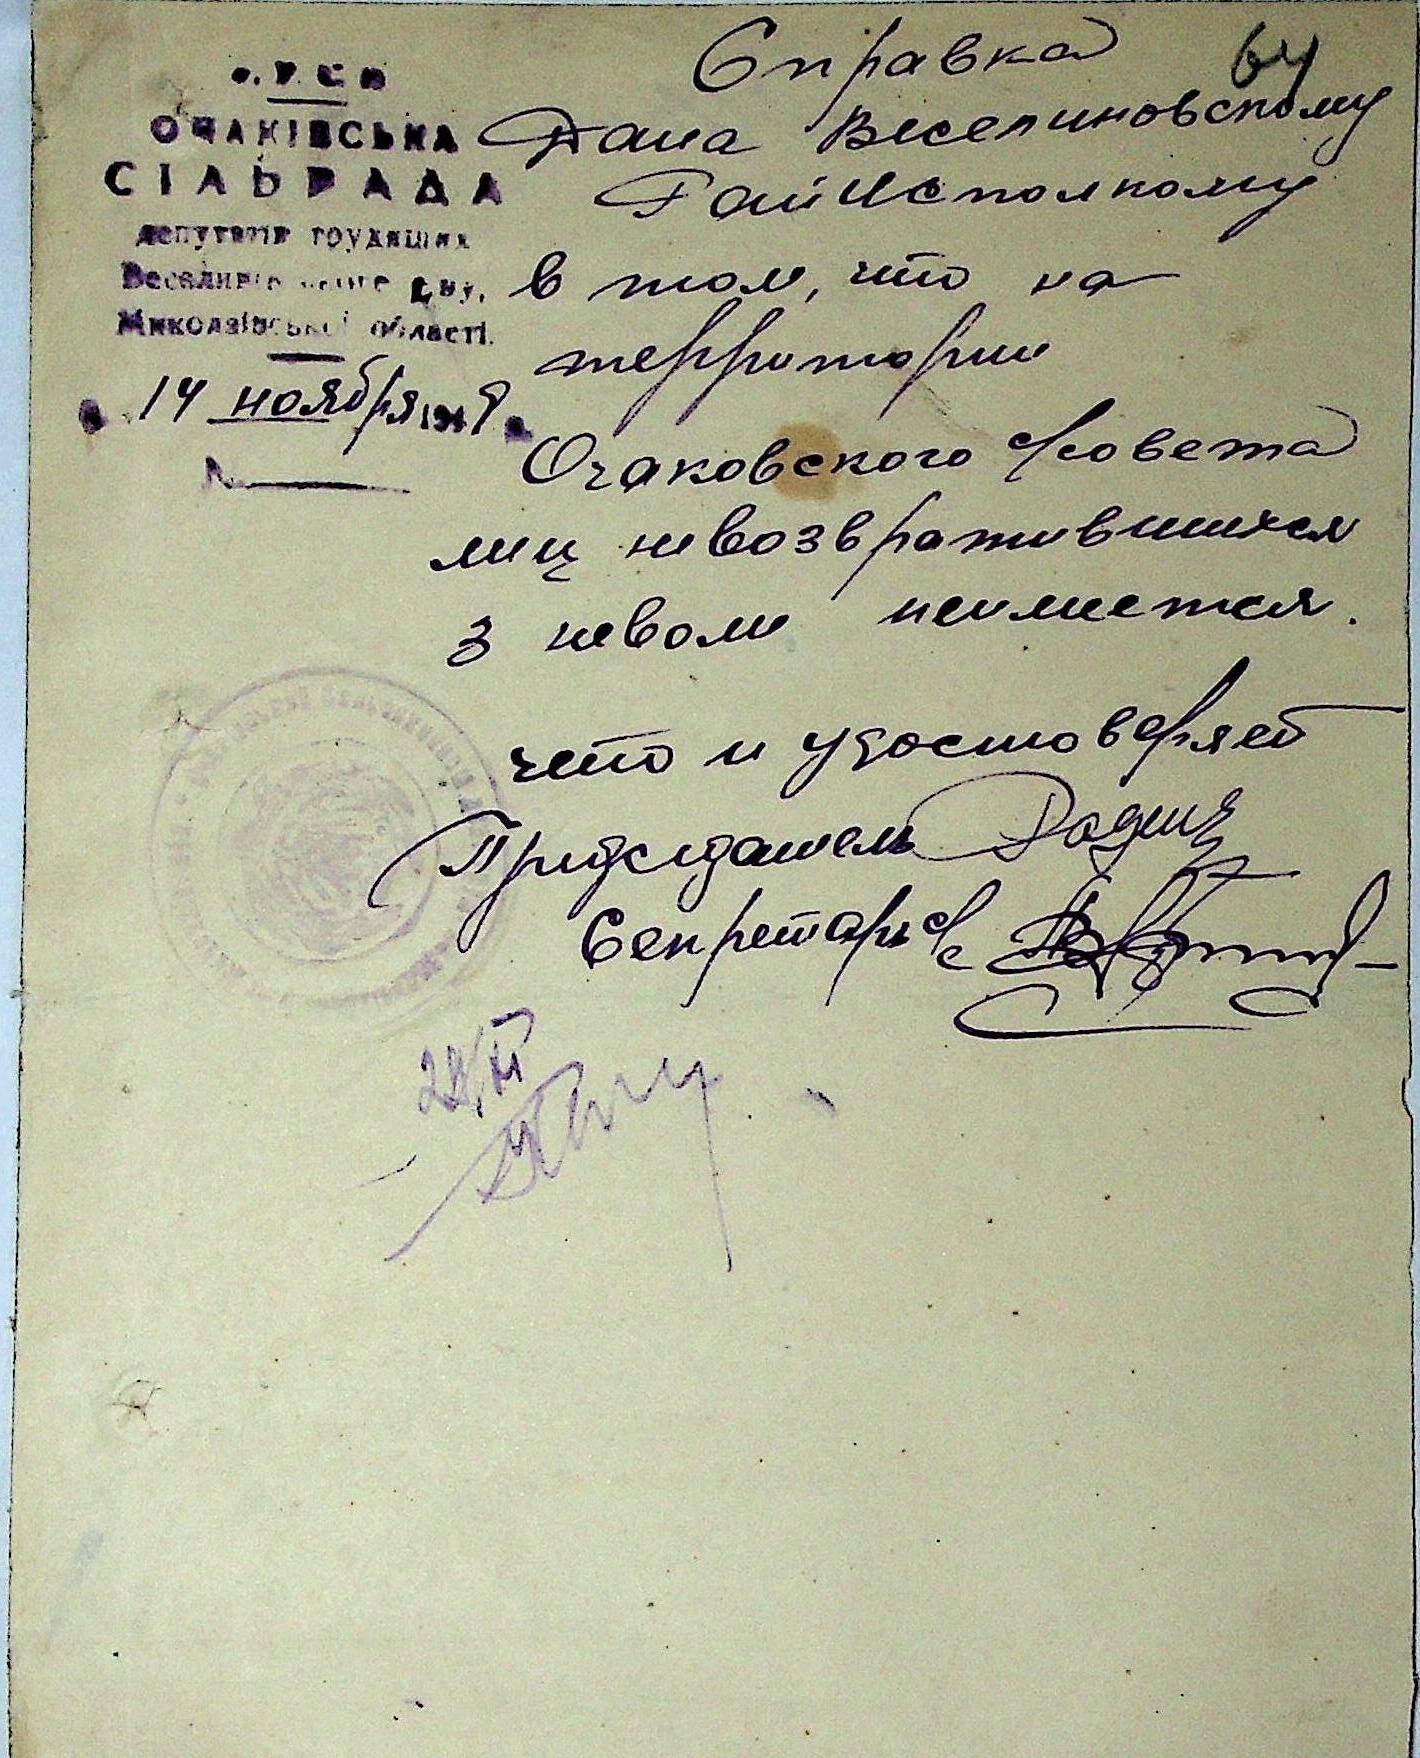 64
У.Р.С.Р.
ОЧАКІВСЬКА
СІЛЬРАДА
депутатів трудящих
Миколаївської області.
14 ноября 1948
№
Справка
Дана Веселиновскому
Райисполкому
в том, что на
территории
Очаковского с/совета
лиц невозвратившихся
з неволи неимеется.
что и удостоверяет
Председатель
Секретарь с/с